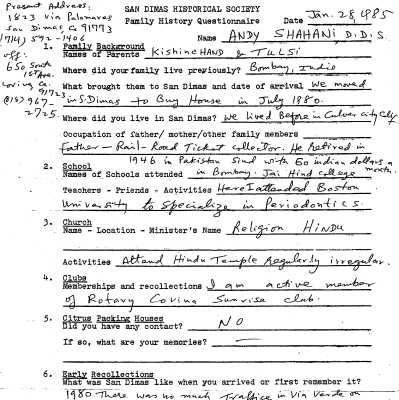 Present Address:
1823 Via Palomares
San Dimas, Ca 91773
(714) 592-1406
off:
650 South
1st Ave.
Covina Ca.
91723
(818) 967-
2725
SAN DIMAS HISTORICAL SOCIETY
Family History Questionnaire Date Jan. 28, 1985
Name ANDY SHAHANI D.D.S
1. Family Background
Names of Parents KishineHAND & TULSI
Where did your family live previously? Bombay, India
What brought them to San Dimas and date of arrival we moved
in S.Dimas to Buy House in July 1980.
Where did you live in San Dimas? We lived Before in Culver city Calif
Occupation of father/ mother/other family members
Father - Rail-Road Ticket collector. He retired in
1946 in Pakistan Sind with 60 indian dollars a month.
2. School
Names of Schools attended in Bombay. Jai Hind college
Teachers - Friends - Activities Here I attended Boston
University to specialize in Periodontics.
3. Church
Name - Location - Minister's Name Religion HINDU
Activities Attend Hindu Temple Regularly irregular.
4. Clubs
Memberships and recollections I am active member
of Rotary Covina Sunrise club.
5. Citrus Packing Houses
Did you have any contact? NO
If so, what are your memories?
6. Early Recollections
What was San Dimas like when you arrived or first remember it?
1980 There was no much Traffic in Via Verde on